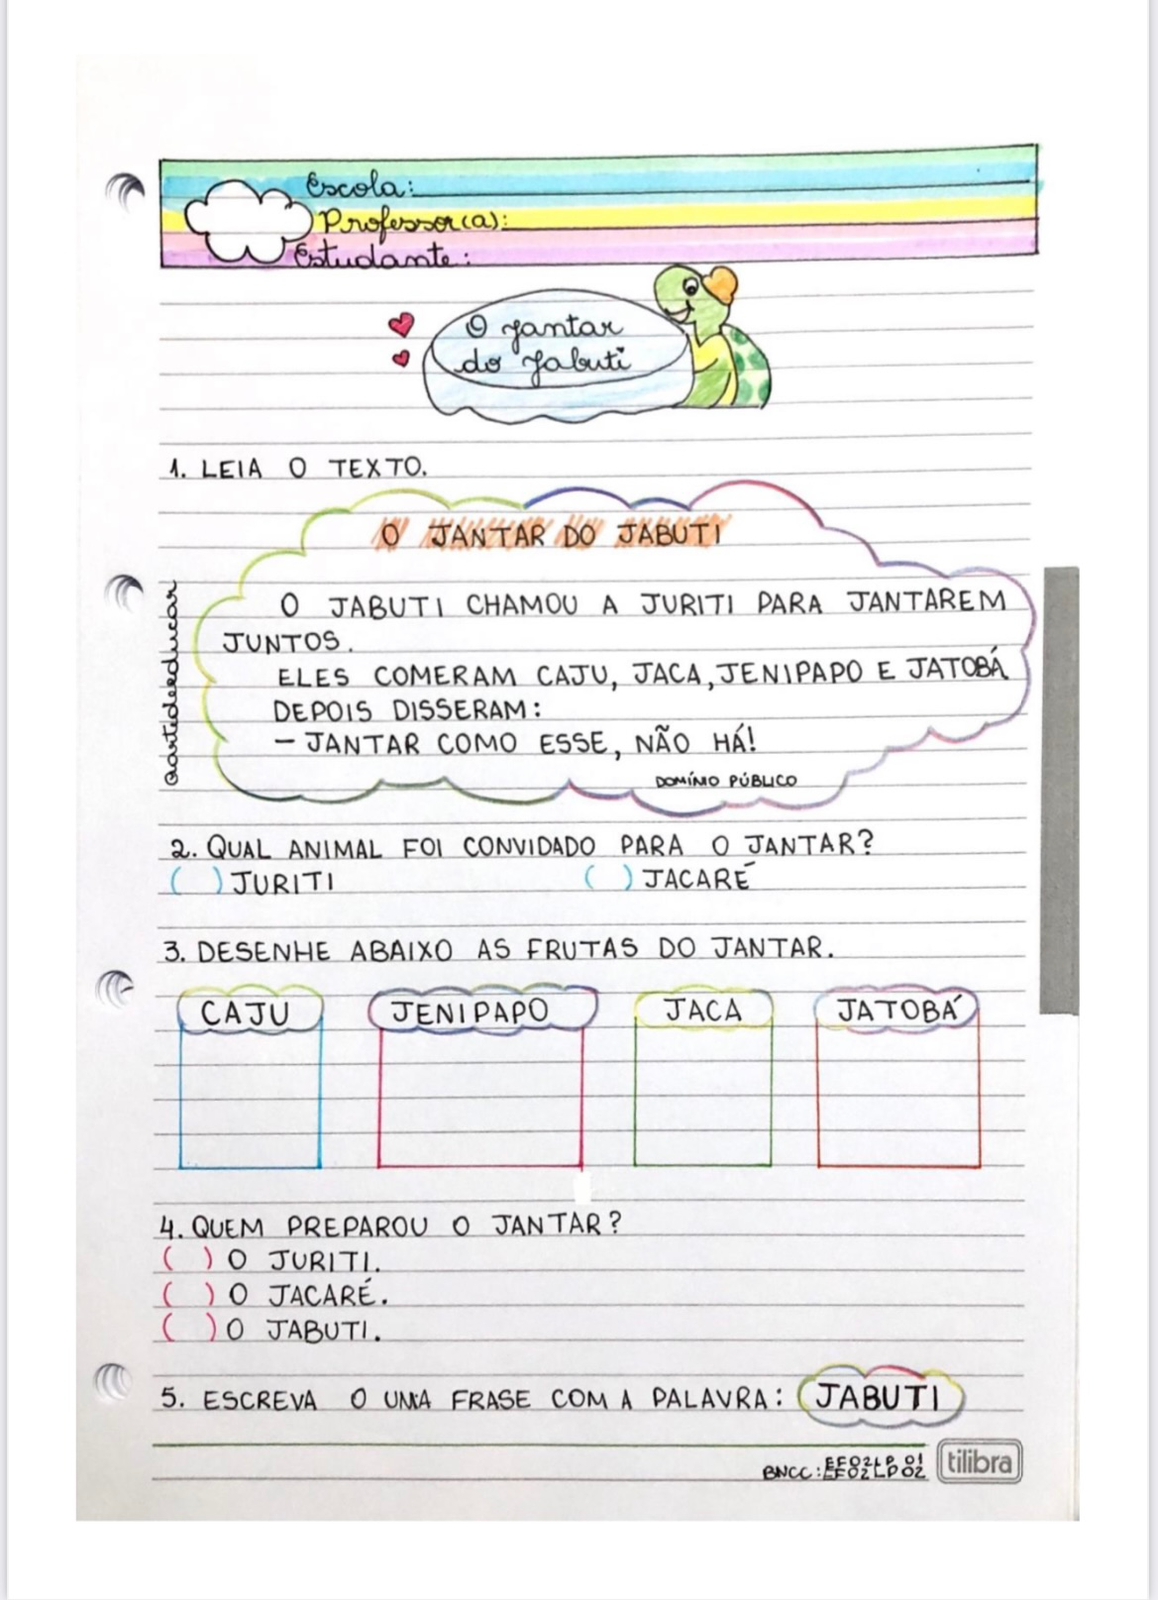 Escola:
Professor(a):
Estudante:
O jantar
do jabuti
1. LEIA O TEXTO.
O JANTAR DO JABUTI
O JABUTI CHAMOU A JURITI PARA JANTAREM
JUNTOS.
ELES COMERAM CAJU, JACA, JENIPAPO E JATOBÁ
DEPOIS DISSERAM:
– JANTAR COMO ESSE, NÃO HÁ!
DOMÍNIO PÚBLICO
2. QUAL ANIMAL FOI CONVIDADO PARA O JANTAR?
( ) JURITI ( ) JACARÉ
3. DESENHE ABAIXO AS FRUTAS DO JANTAR.
CAJU JENIPAPO JACA JATOBÁ
4. QUEM PREPAROU O JANTAR?
( ) O JURITI.
( ) O JACARÉ.
( ) O JABUTI.
5. ESCREVA O UMA FRASE COM A PALAVRA: JABUTI
BNCC:
tilibra